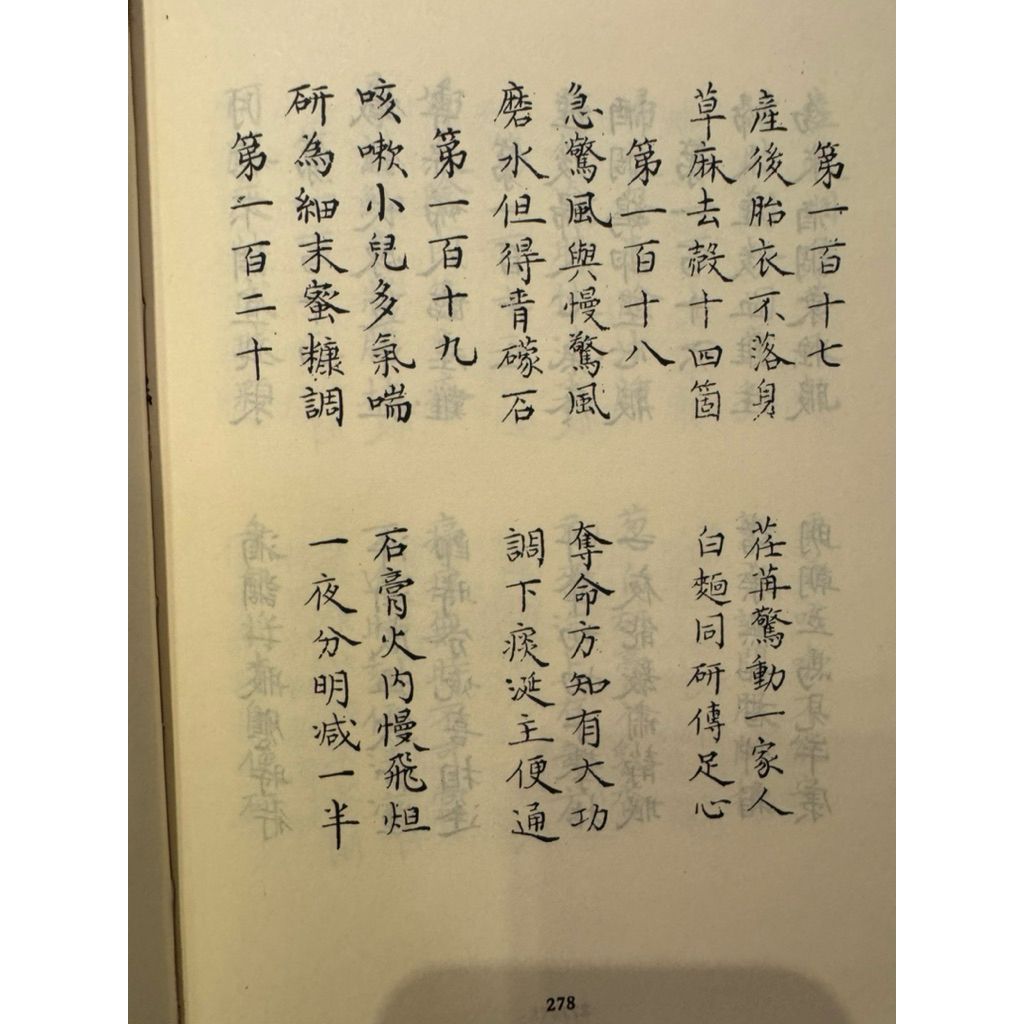 第一百十七
產後胎衣不落身 荏苒驚動一家人
草麻去殼十四箇 白麵同研傅足心
第一百十八
急驚風與慢驚風 奪命方知有大功
磨水但得青礞石 調下痰涎主便通
第一百十九
咳嗽小兒多氣喘 石膏火內慢飛炟
研為細末蜜糠調 一夜分明減一半
第一百二十
278